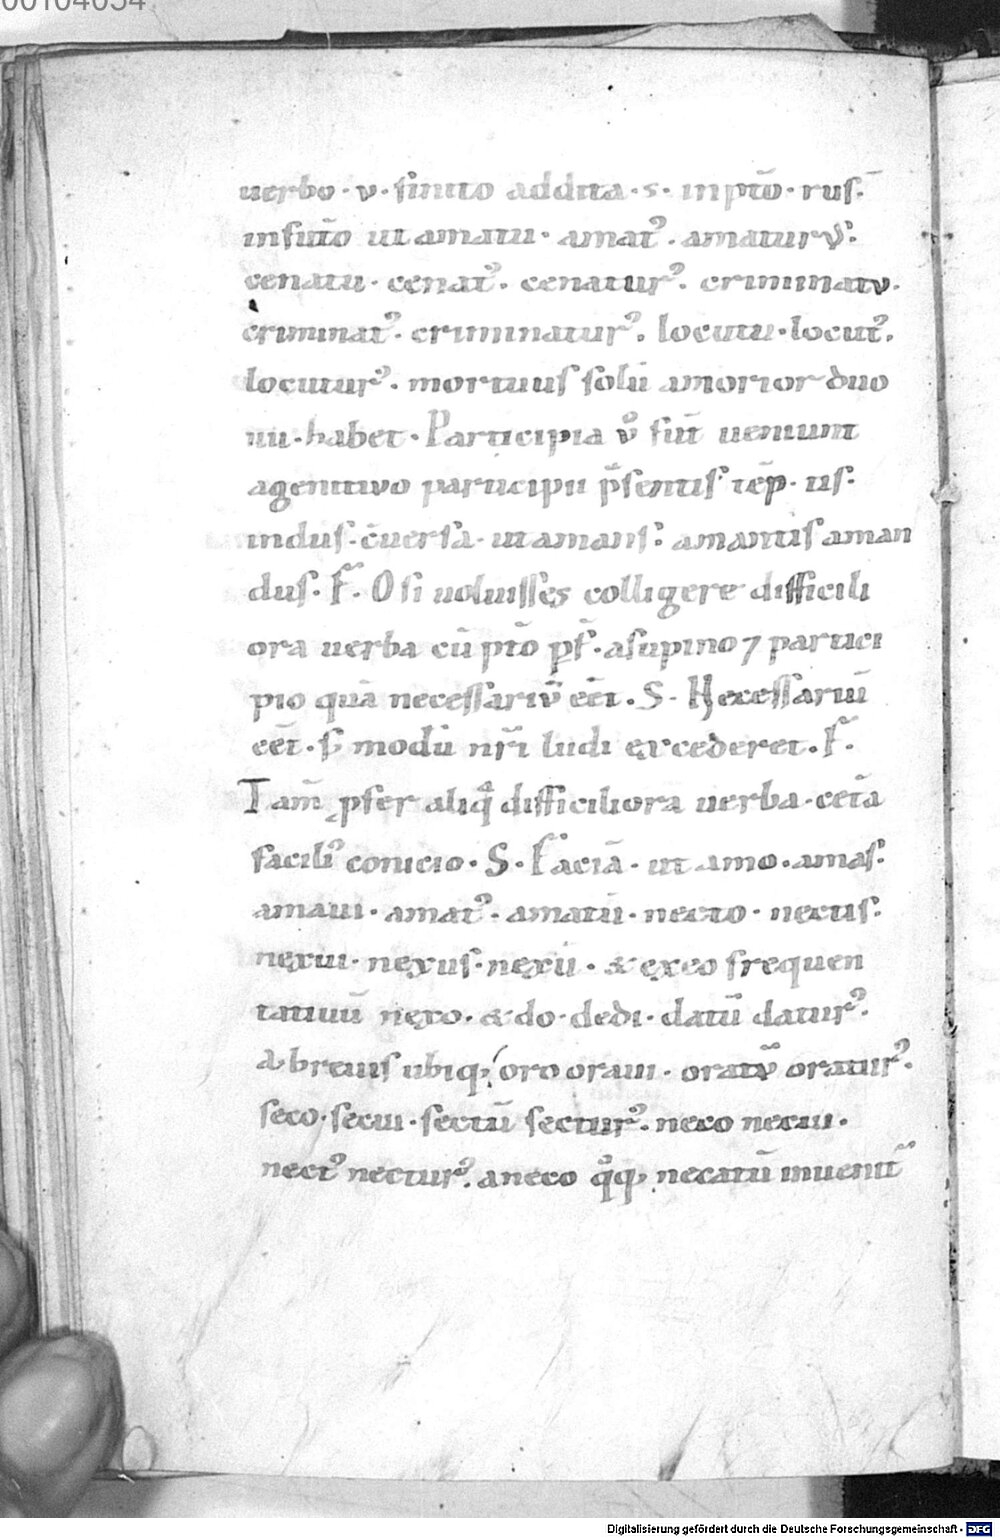 00104054
uerbo · v · finito addita · s · in pto᷎ · rus.
in futo᷎ ut amatu · amatꝰ. amaturꝰ.
cenatu · cenatꝰ. cenaturꝰ. criminatv.
criminatꝰ. criminaturꝰ. locutu · locutꝰ.
locuturꝰ. mortuus solū a morior duo
uu · habet · Participia v̊ fut̄ ueniunt
a genitiuo participii p̄sentis tēp · tis.
in dus · c̄uersa · ut amans. amantis aman
dus. F̄. O si uoluisses colligere difficili
ora uerba cū pto᷎ pf̄. a supino ⁊ partici
pio quā necessariv̄ eēt. S. Necessariū
eēt. s; modū nr̄i ludi excederet. F̄.
Tam̄ ꝓfer aliqͣ difficiliora uerba · cet̄a
faciliꝰ conicio. S. Faciā. ut amo. amas.
amaui. amatꝰ. amatū. necto. nectis.
nexui. nexus. nexū. & ex eo frequen
tatiuū nexo. & do. dedi. datū daturꝰ.
A breuis ubiqꝫ oro oraui. oratv̄ oraturꝰ.
seco. secui. sectū secturꝰ. neco necui.
nectꝰ necturꝰ. a neco qͦqꝫ necatū inuenit̄
Digitalisierung gefördert durch die Deutsche Forschungsgemeinschaft - DFG